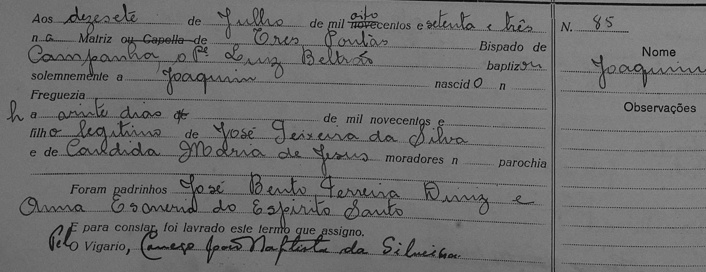 Aos dezesete de Julho de mil oito novecentos e setenta e três
n a Matriz ou Capella de Tres Pontas Bispado de
Campanha o Pe Luiz Beltrão baptizou
solemnemente a Joaquim nascido n
Freguezia
h a vinte dias de de mil novecentos e
filho legitimo de José Teixeira da Silva
e de Candida Maria de Jesus moradores n parochia
Foram padrinhos José Bento Ferreira Diniz e
Anna do Espirito Santo
E para constar foi lavrado este termo que assigno.
Pelo O Vigario, Conego João Baptista da Silveira
N. 85
Nome
Joaquim
Observações